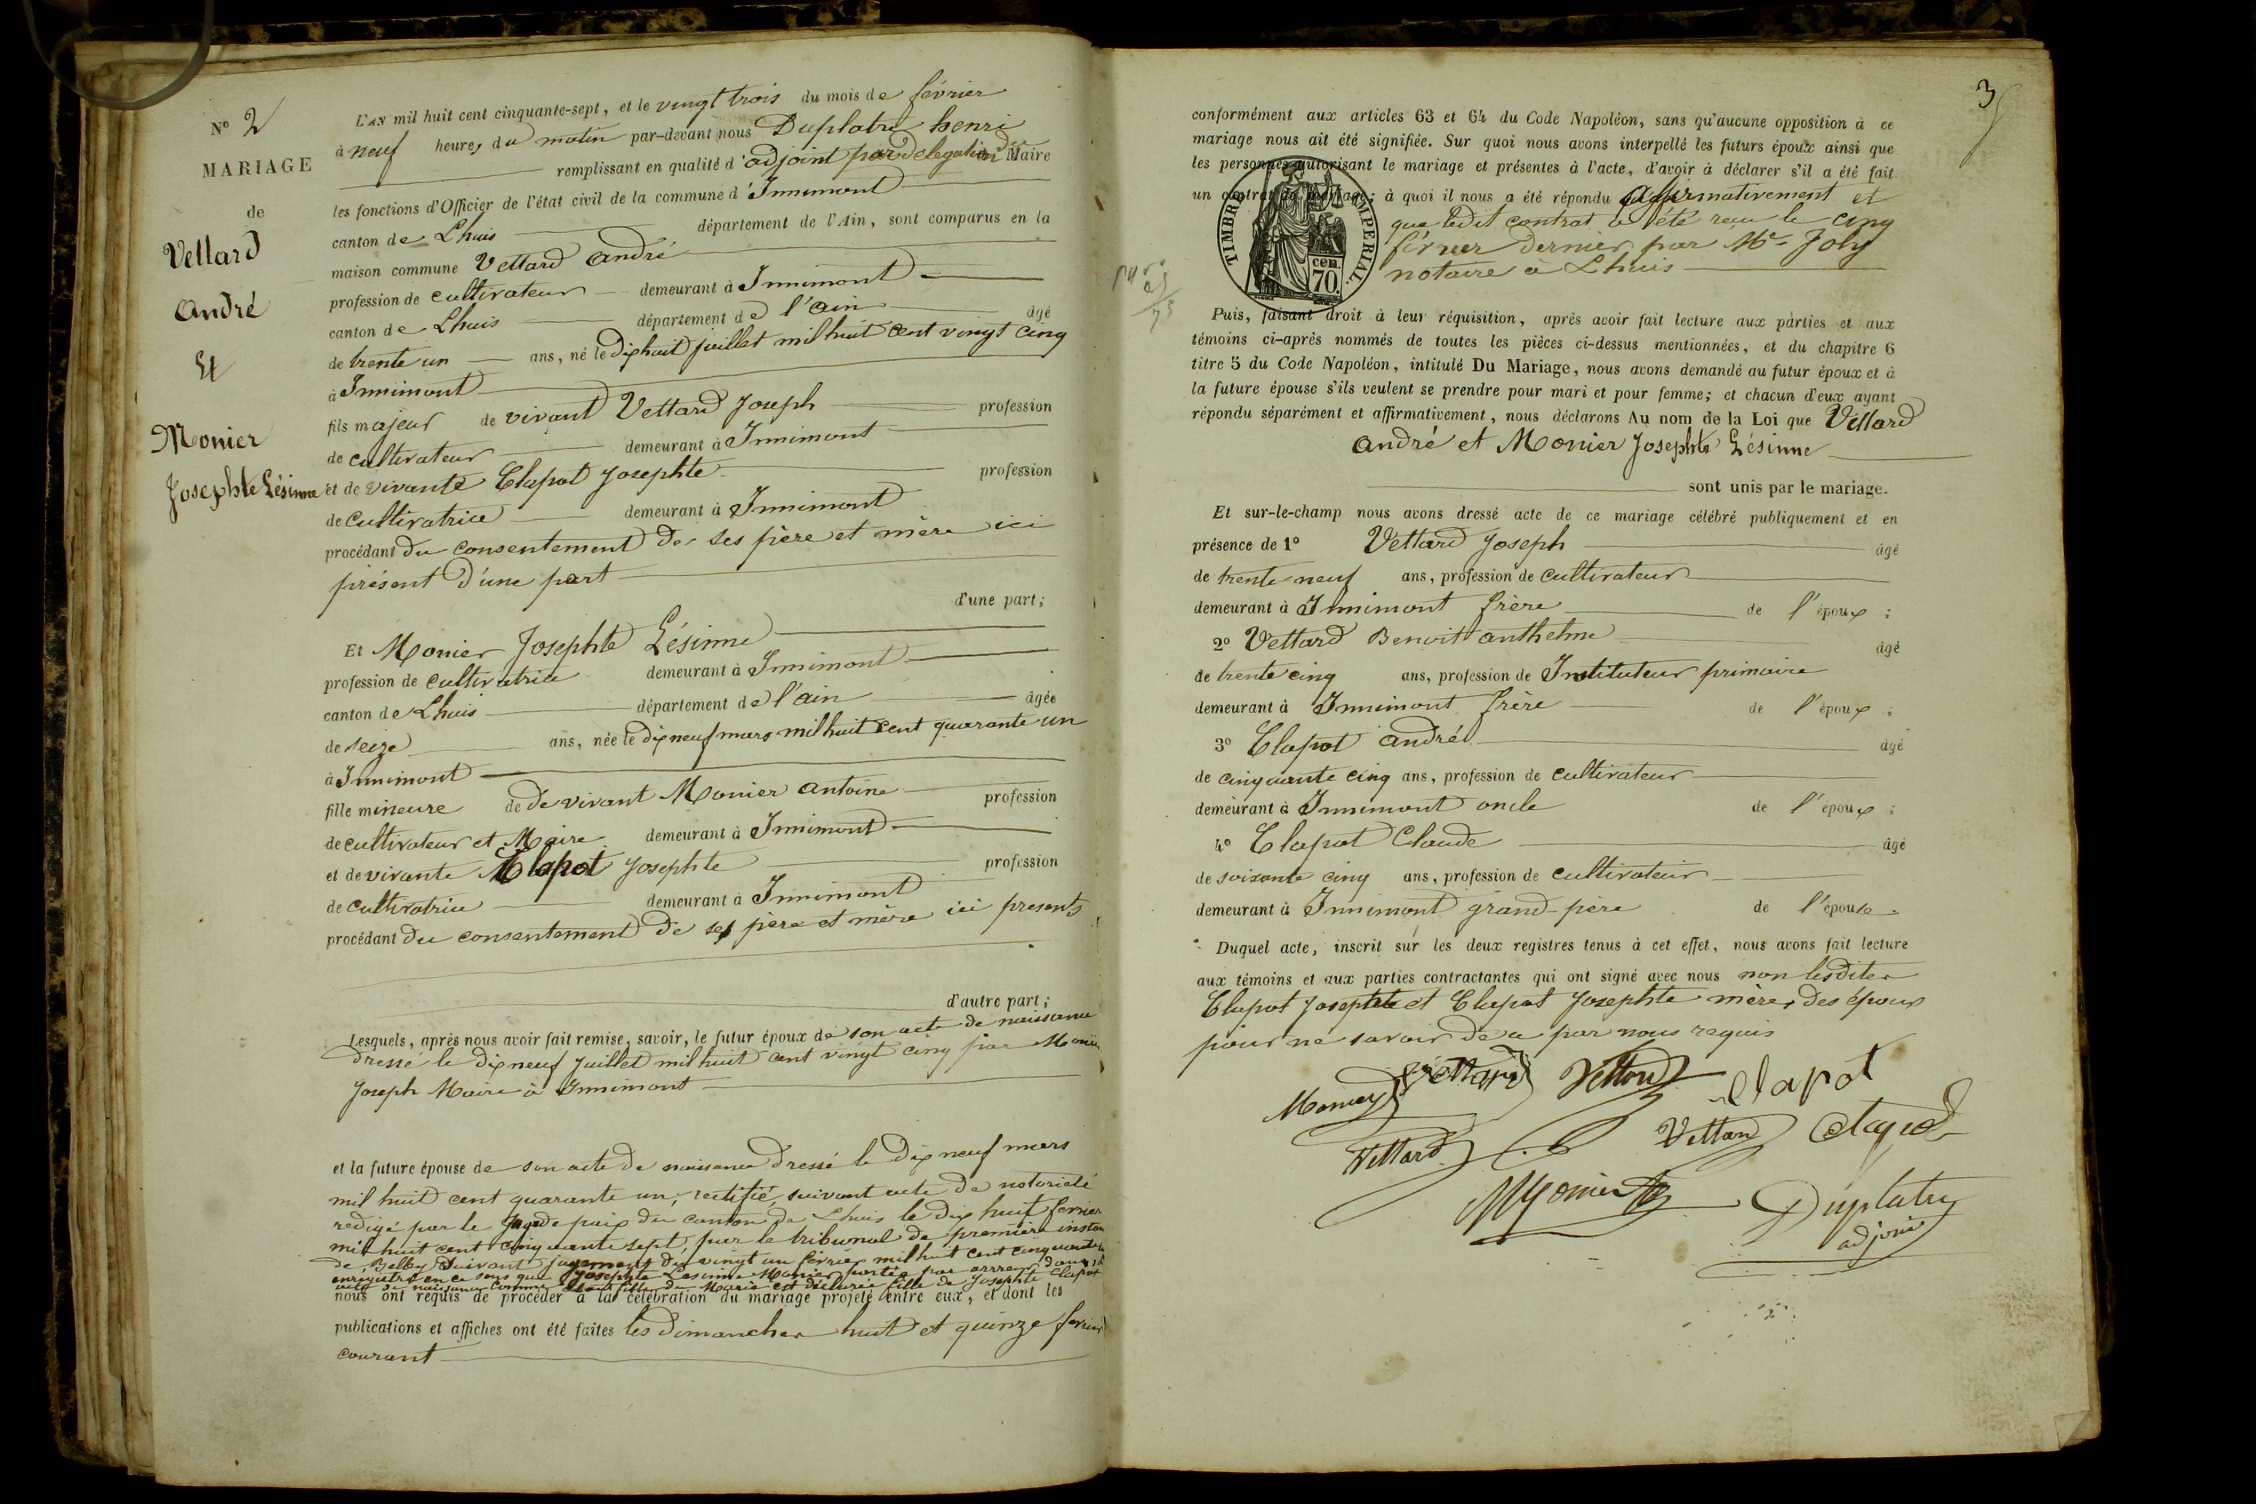 N° 2
MARIAGE
de
Vettard
André
Et
Monier
Josephte Lésinne
L'AN mil huit cent cinquante-sept, et le vingt trois du mois de février
à neuf heures du matin par-devant nous Duplatre henri
remplissant en qualité d'adjoint par délégation du Maire
les fonctions d'Officier de l'état civil de la commune d'Innimont
canton de Lhuis département de l'Ain, sont comparus en la
maison commune Vettard André
profession de cultivateur demeurant à Innimont
canton de Lhuis département de l'ain âgé
de trente un ans, né le dixhuit juillet mil huit cent vingt cinq
à Innimont
fils majeur de vivant Vettard Joseph profession
de cultivateur demeurant à Innimont
et de vivante Clapot Josephte profession
de cultivatrice demeurant à Innimont
procédant du consentement de ses père et mère ici
présent d'une part
d'une part;
Et Monier Josephte Lésinne
profession de cultivatrice demeurant à Innimont
canton de Lhuis département de l'ain âgée
de seize ans, née le dix neuf mars mil huit cent quarante un
à Innimont
fille mineure de de vivant Monier antoine profession
de cultivateur et Maire demeurant à Innimont
et de vivante Clapot Josephte profession
de cultivatrice demeurant à Innimont
procédant du consentement de ses père et mère ici presents
d'autre part;
Lesquels, après nous avoir fait remise, savoir, le futur époux de son acte de naissance
dressé le dix neuf juillet mil huit cent vingt cinq par Monier
Joseph Maire à Innimont
et la future épouse de son acte de naissance dressé le dix neuf mars
mil huit cent quarante un, rectifié suivant acte de notorieté
redigé par le Juge de paix du canton de Lhuis le dix huit fevrier
mil huit cent cinquante sept, par le tribunal de première instan
de Belley suivant jugement du vingt un février mil huit cent cinquante
enregistré en ce sens que Josephte Lésinne Monier portée par erreur dans
acte de naissance comme fille de Marie est déclarée fille de Josephte Clapot
nous ont requis de procéder à la célébration du mariage projeté entre eux, et dont les
publications et affiches ont été faites les dimanches huit et quinze fevrier
courant
3
conformément aux articles 63 et 64 du Code Napoléon, sans qu'aucune opposition à ce
mariage nous ait été signifiée. Sur quoi nous avons interpellé les futurs époux ainsi que
les personnes autorisant le mariage et présentes à l'acte, d'avoir à déclarer s'il a été fait
un contrat de mariage; à quoi il nous a été répondu affirmativement et
que ledit contrat a été reçu le cinq
février dernier par Me Joly
notaire à Lhuis
TIMBRE IMPERIAL.
cen.
70.
Puis, faisant droit à leur réquisition, après avoir fait lecture aux parties et aux
témoins ci-après nommés de toutes les pièces ci-dessus mentionnées, et du chapitre 6
titre 5 du Code Napoléon, intitulé Du Mariage, nous avons demandé au futur époux et à
la future épouse s'ils veulent se prendre pour mari et pour femme; et chacun d'eux ayant
répondu séparément et affirmativement, nous déclarons Au nom de la Loi que Vettard
andré et Monier Josephte Lésinne
sont unis par le mariage.
Et sur-le-champ nous avons dressé acte de ce mariage célébré publiquement et en
présence de 1° Vettard Joseph âgé
de trente neuf ans, profession de cultivateur
demeurant à Innimont frère de l'époux ;
2° Vettard Benoit anthelme âgé
de trente cinq ans, profession de Instituteur primaire
demeurant à Innimont frère de l'époux ;
3° Clapot andré âgé
de cinquante cinq ans, profession de cultivateur
demeurant à Innimont oncle de l'époux ;
4° Clapot Claude âgé
de soixante cinq ans, profession de cultivateur
demeurant à Innimont grand-père de l'épouse.
Duquel acte, inscrit sur les deux registres tenus à cet effet, nous avons fait lecture
aux témoins et aux parties contractantes qui ont signé avec nous non lesdites
Clapot Josephte et Clapot Josephte mères des époux
pour ne savoir de ce par nous requis
Monier Vettard Vettard Clapot
Vettard Vettard Clapot
Monier Duplatre
adjoint